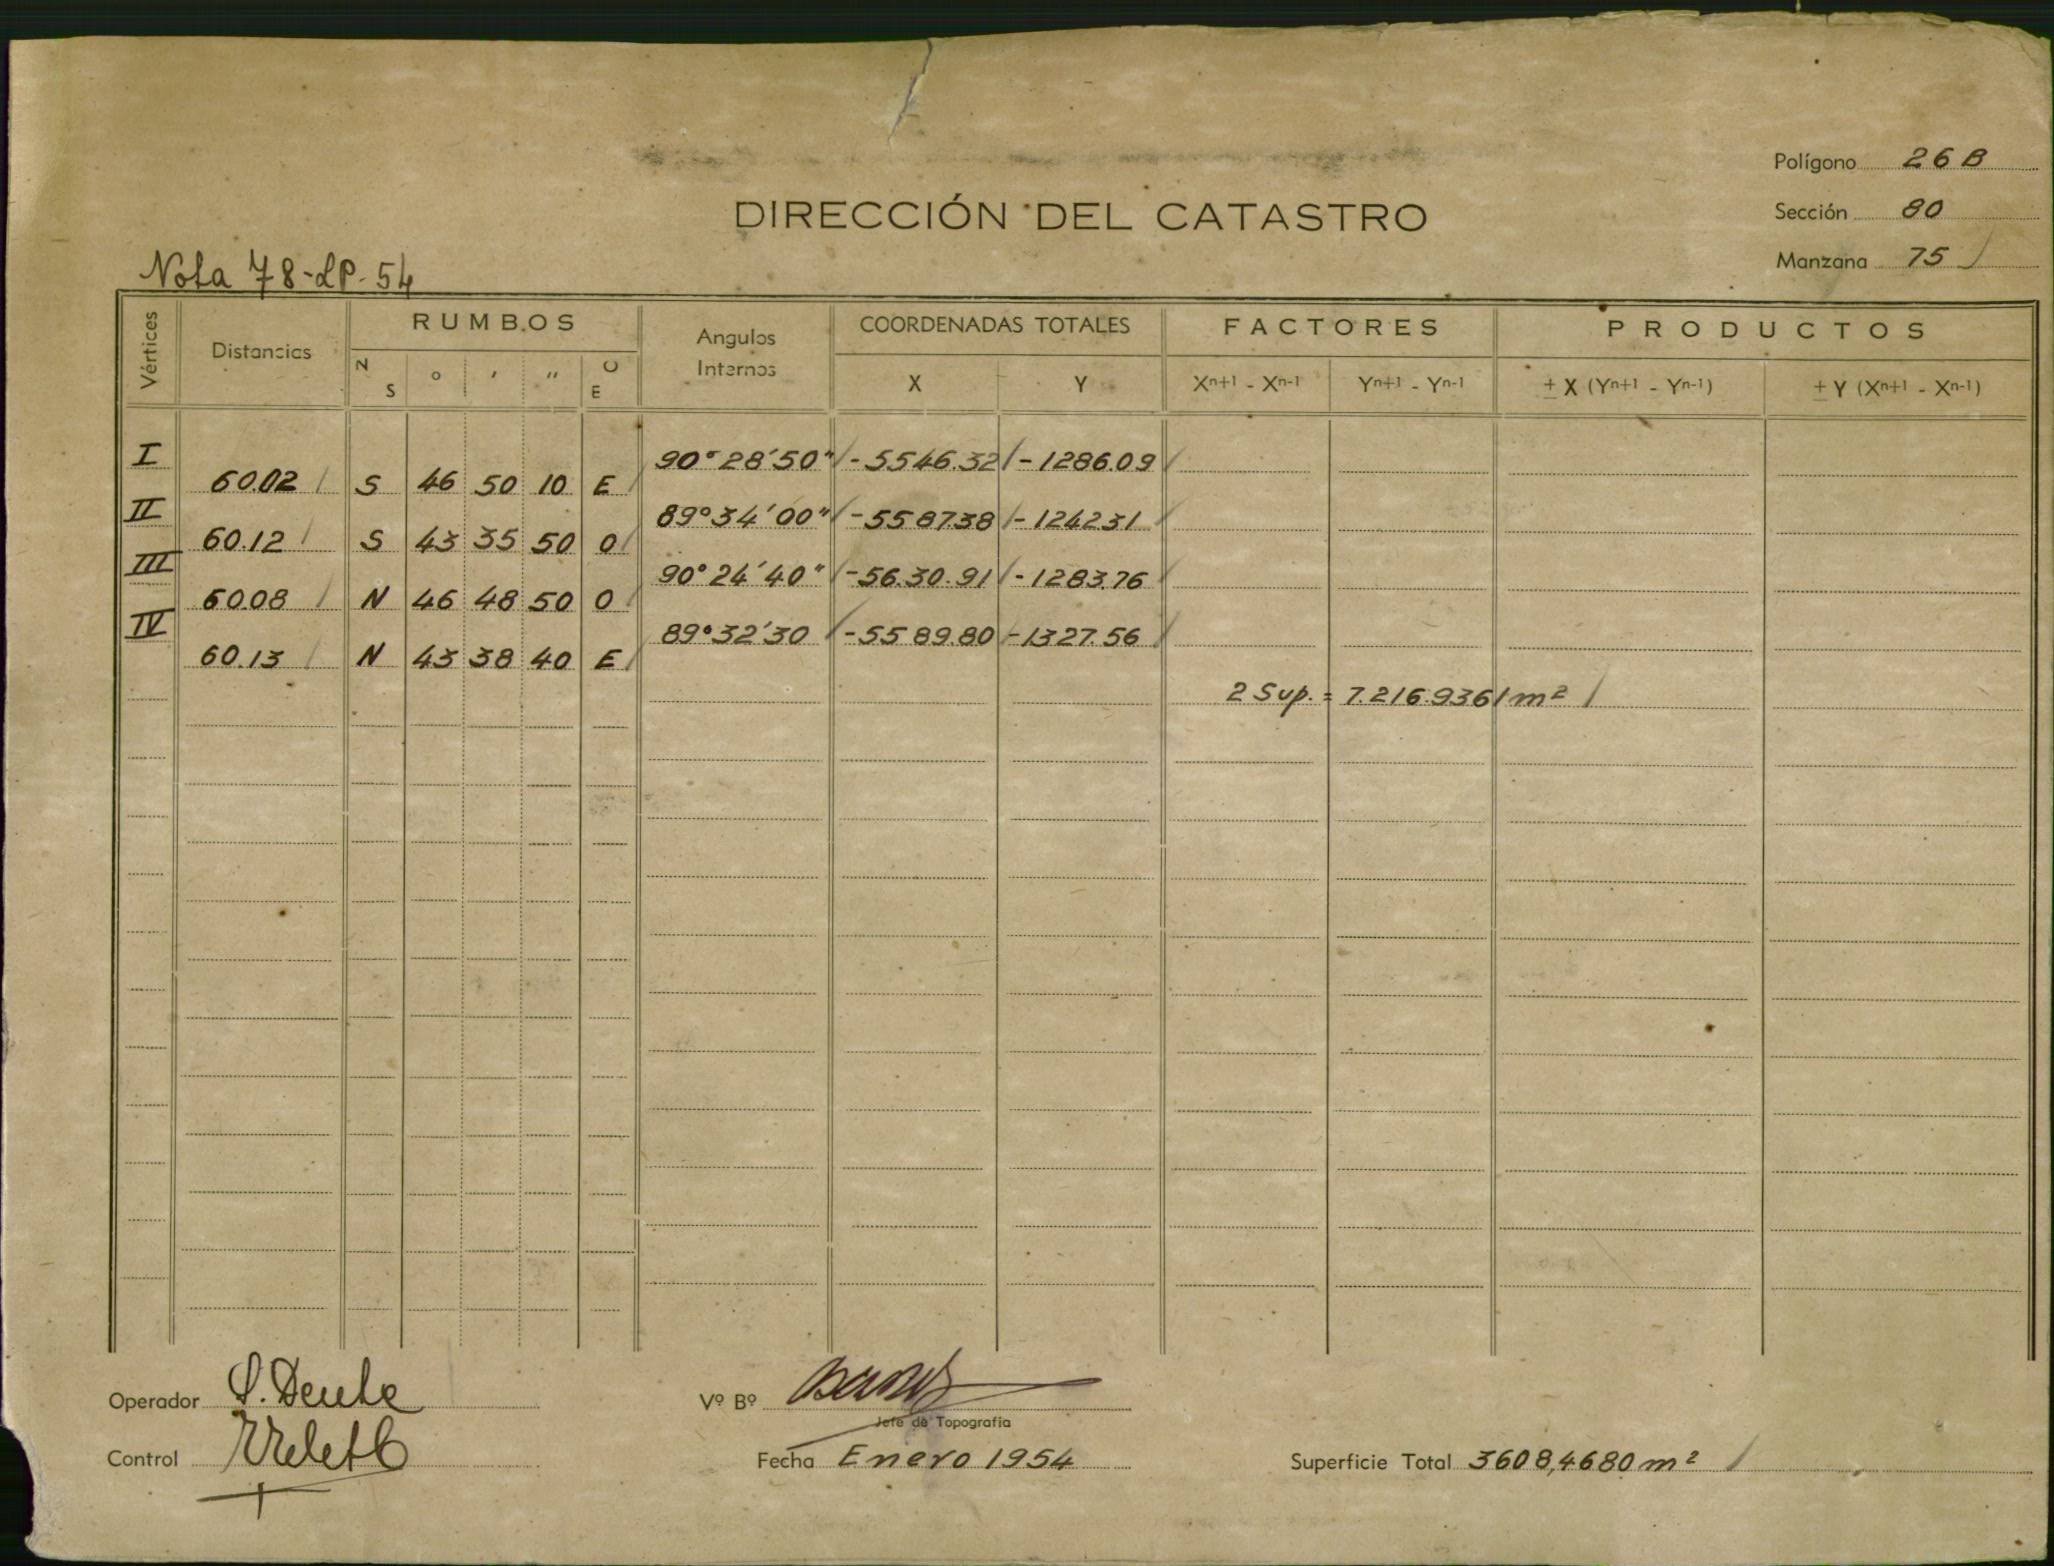 Polígono 26 B
DIRECCIÓN DEL CATASTRO
Sección 80
Manzana 75 /
Nota 78-LP-54
Vértices Distancias RUMBOS Angulos Internos COORDENADAS TOTALES FACTORES PRODUCTOS
N S ° ' " O E X Y Xn+1 - Xn-1 Yn+1 - Yn-1 ± X (Yn+1 - Yn-1) ± Y (Xn+1 - Xn-1)
I 90°28'50" / -5546.32 / -1286.09 /
60.02 / S 46 50 10 E /
II 89°34'00" / -558738 / -124231 /
60.12 / S 43 35 50 O /
III 90°24'40" / -56.30.91 / -1283.76 /
6008 / N 46 48 50 O /
IV 89°32'30 / -5589.80 / -1327.56 /
60.13 / N 43 38 40 E /
2 Sup. = 7.216.9361 m² /
Operador
Vº Bº
Jefe de Topografía
Control
Fecha Enero 1954
Superficie Total 3608,4680 m² /